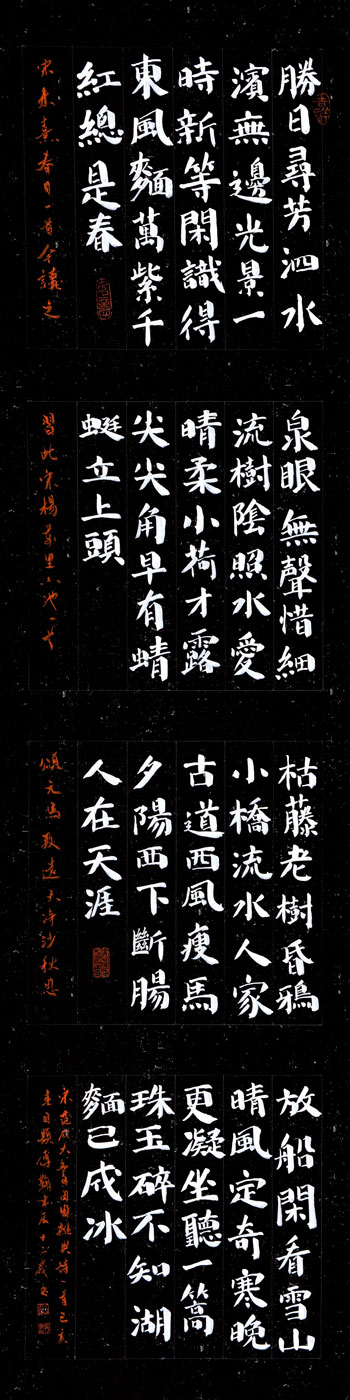 勝日尋芳泗水
濱無邊光景一
時新等閑識得
東風麵萬紫千
紅總是春
宋朱熹春日一首今讀之
泉眼無聲惜細
流樹陰照水愛
晴柔小荷才露
尖尖角早有蜻
蜓立上頭
習此宋楊萬里小池一首
枯藤老樹昏鴉
小橋流水人家
古道西風瘦馬
夕陽西下斷腸
人在天涯
頌元馬致遠天淨沙秋思
放船閑看雪山
晴風定奇寒晚
更凝坐聽一篙
珠玉碎不知湖
麵已成冰
宋范成大冬日田園雜興詩一首己亥